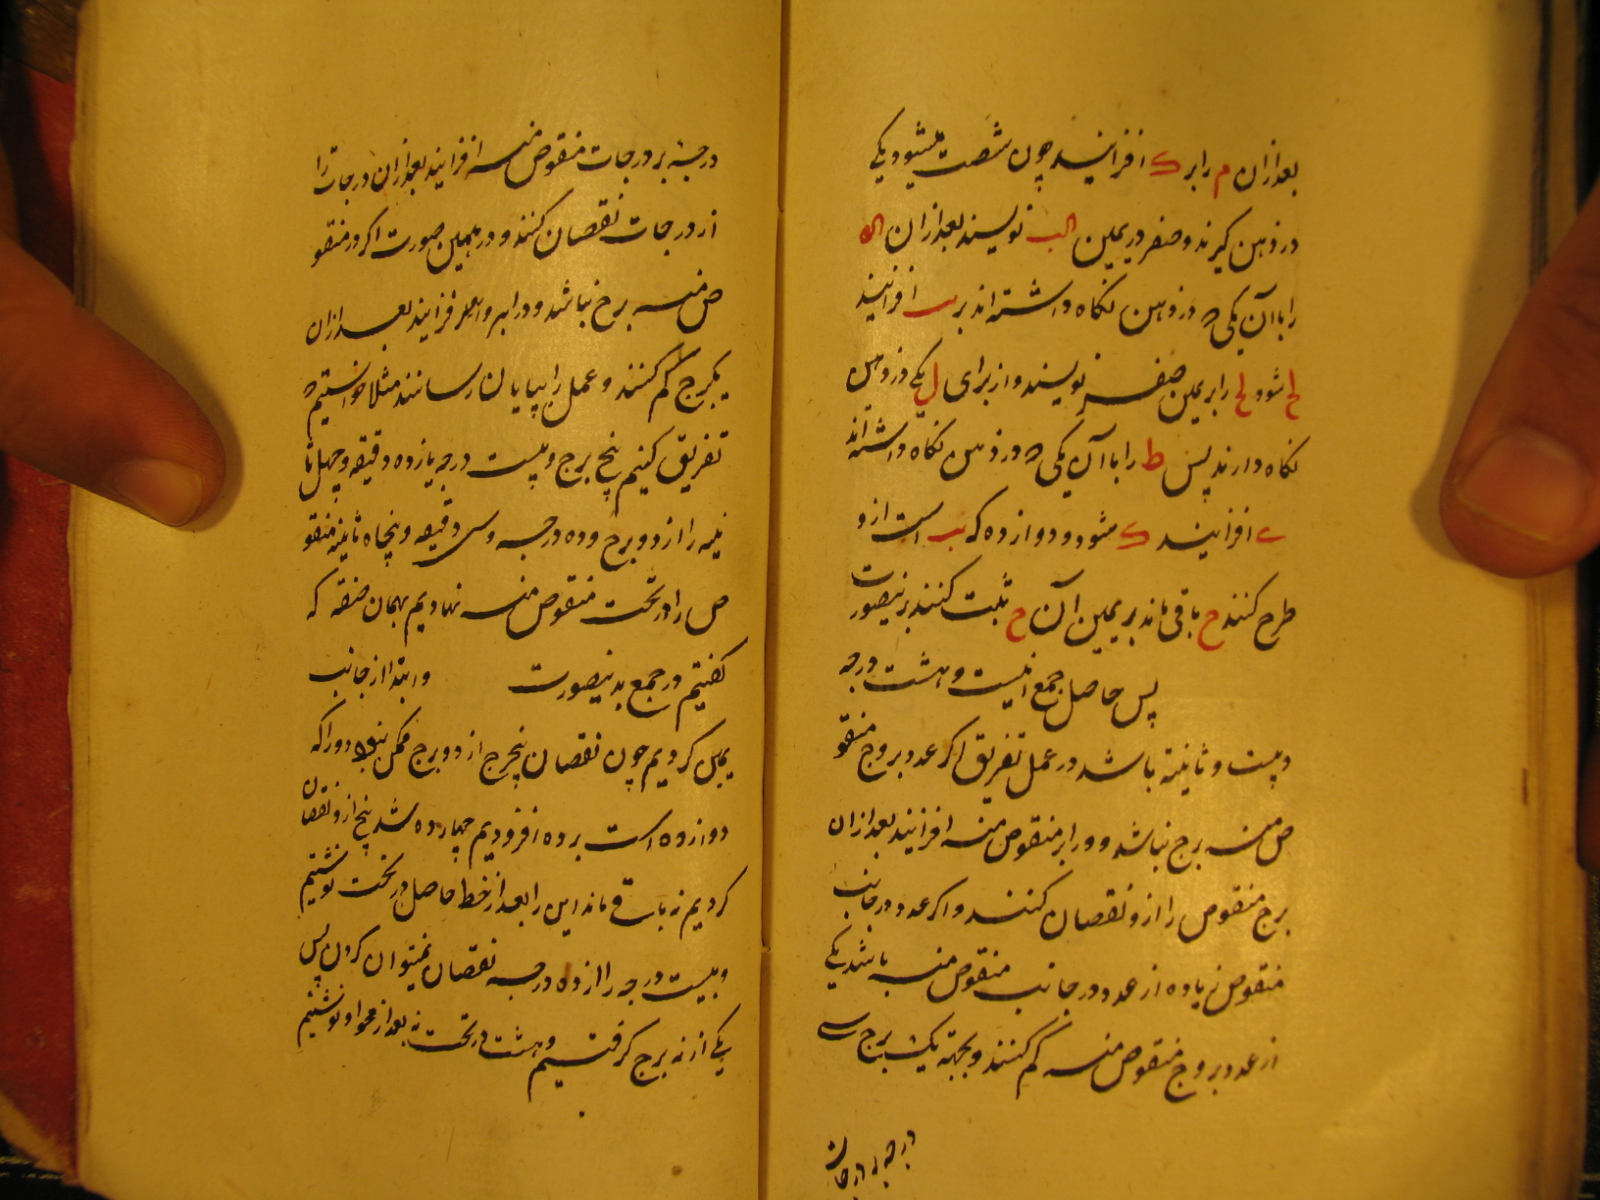 بعد ازان م را بر ک افزایند چون شصت میشود یکی
در ذهن گیرند و صفر در یمین الب نویسند بعد ازان
را با آن یکی که در ذهن نگاه داشته اند بر افزایند
لح شود و لح را بر یمین صفر نویسند و از برای ل یکی در ذهن
نگاه دارند پس ط را با آن یکی که در ذهن نگاه داشته اند
ی افزایند ک شود و دوازده که یب است ازو
طرح کنند ح باقی ماند بر یمین آن ح ثبت کنند برنیصورت
پس حاصل جمع بیست و هشت درجه
و بیست و ثانیه باشد در عمل تفریق اگر عدد بروج منقو
ص منه برج نباشد دور را بر منقوص منه افزایند بعد ازان
برج منقوص را ازو نقصان کنند و اگر عدد در جانب
منقوص زیاده از عدد در جانب منقوص منه باشد یکی
از عدد بروج منقوص منه کم کنند و بجهة یک برج سی
درجه بر درجات
درجه بر درجات منقوص منه افزایند بعد ازان درجات را
از درجات نقصان کنند و در همین صورت اگر در منقو
ص منه برج نباشد دور را بر افزایند بعد ازان
یکبرج کم کنند و عمل را بپایان رسانند مثلا خواستیم که
تفریق کنیم پنج برج و بیست درجه یازده دقیقه و چهل ثا
نیه را از دو برج و ده درجه و سی دقیقه و پنجاه ثانیه منقو
ص را در تحت منقوص منه نهادیم بهمان صفة که
گفتیم در جمع بدینصورت و ابتدا از جانب
یمین کردیم چون نقصان پنجبرج از دو برج ممکن نبود دور را که
دوازده است بر ده افزودیم چهارده شد پنج ازو نقصان
کردیم نه باقی ماند این را بعد از خط حاصل در تحت نوشتیم
و بیست درجه را از ده درجه نقصان نمیتوان کردن پس
یکی از نه برج گرفتیم و هشت در تحت نه بعد از محو او نوشتیم